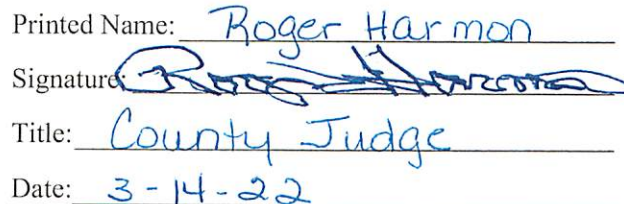 Printed Name: Roger Harmon
Signature: Roger Harmon
Title: County Judge
Date: 3-14-22